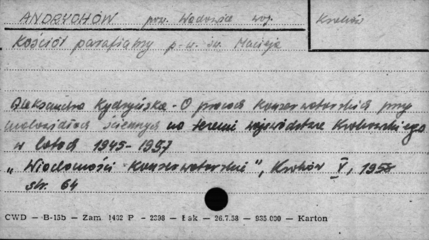 ANDRYCHÓW pow. Wadowice woj. Kraków
Kościół parafialny p.w. św. Macieja
Aleksandra Kydryńska - O pracach konserwatorskich przy
malowidłach ściennych na terenie województwa krakowskiego
w latach 1945-1957
"Wiadomości konserwatorskie", Kraków V, 1958
str. 64
CWD — B-15b — Zam. 1432 P - 2398 — Łak — 26.7.58 — 935 000 — Karton